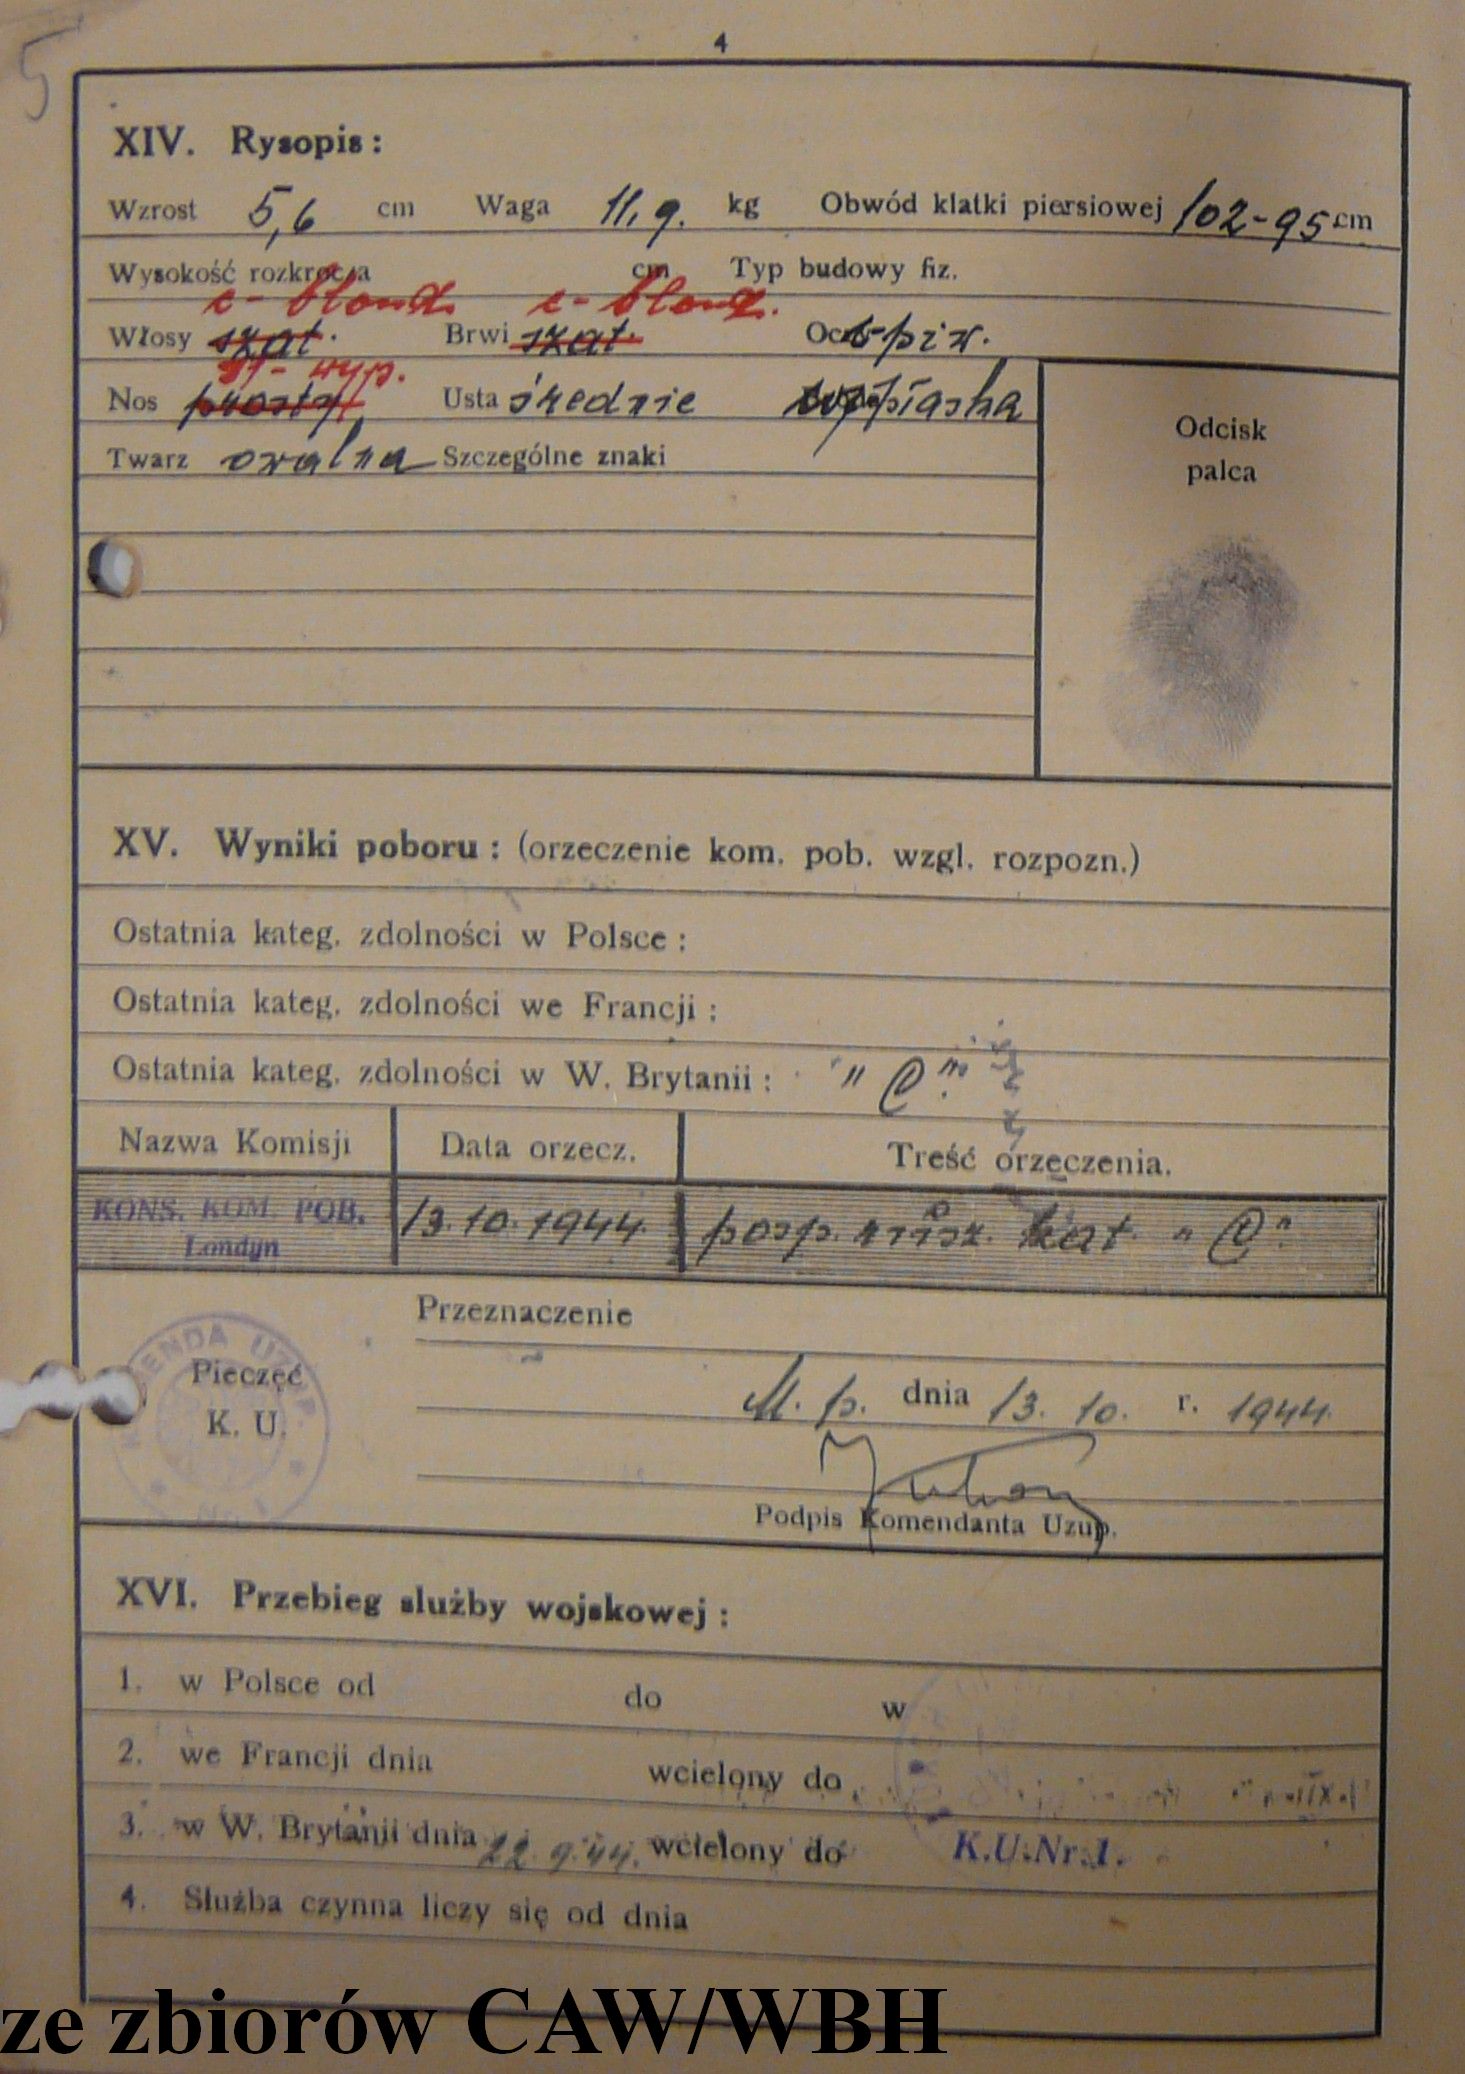 5
4
XIV. Rysopis :
Wzrost 5,6 cm Waga 11,9. kg Obwód klatki piersiowej 102-95 cm
Wysokość rozkrocza cm Typ budowy fiz.
c-blond. c-blond.
Włosy szat. Brwi szat. Oczy piw.
st-wyp.
Nos prosty Usta średnie płaska
Twarz owalna Szczególne znaki
Odcisk
palca
XV. Wyniki poboru : (orzeczenie kom. pob. wzgl. rozpozn.)
Ostatnia kateg. zdolności w Polsce :
Ostatnia kateg. zdolności we Francji :
Ostatnia kateg. zdolności w W. Brytanii : "C".
Nazwa Komisji Data orzecz. Treść orzeczenia.
KONS. KOM. POB. 13.10.1944. posp. rusz. kat. "C"
Londyn
Przeznaczenie
KOMENDA UZUP.
Pieczęć
K. U.
Nr. 1
M. p. dnia 13. 10. r. 1944.
Podpis Komendanta Uzup.
XVI. Przebieg służby wojskowej :
1. w Polsce od do w
2. we Francji dnia wcielony do
3. w W. Brytanii dnia 22.9.44. wcielony do K.U.Nr.1.
4. Służba czynna liczy się od dnia
ze zbiorów CAW/WBH